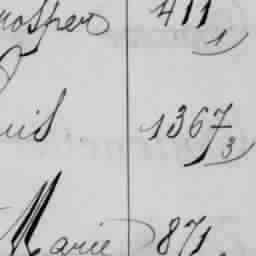 rosper 411 1
uis 1367 3
Marie 871